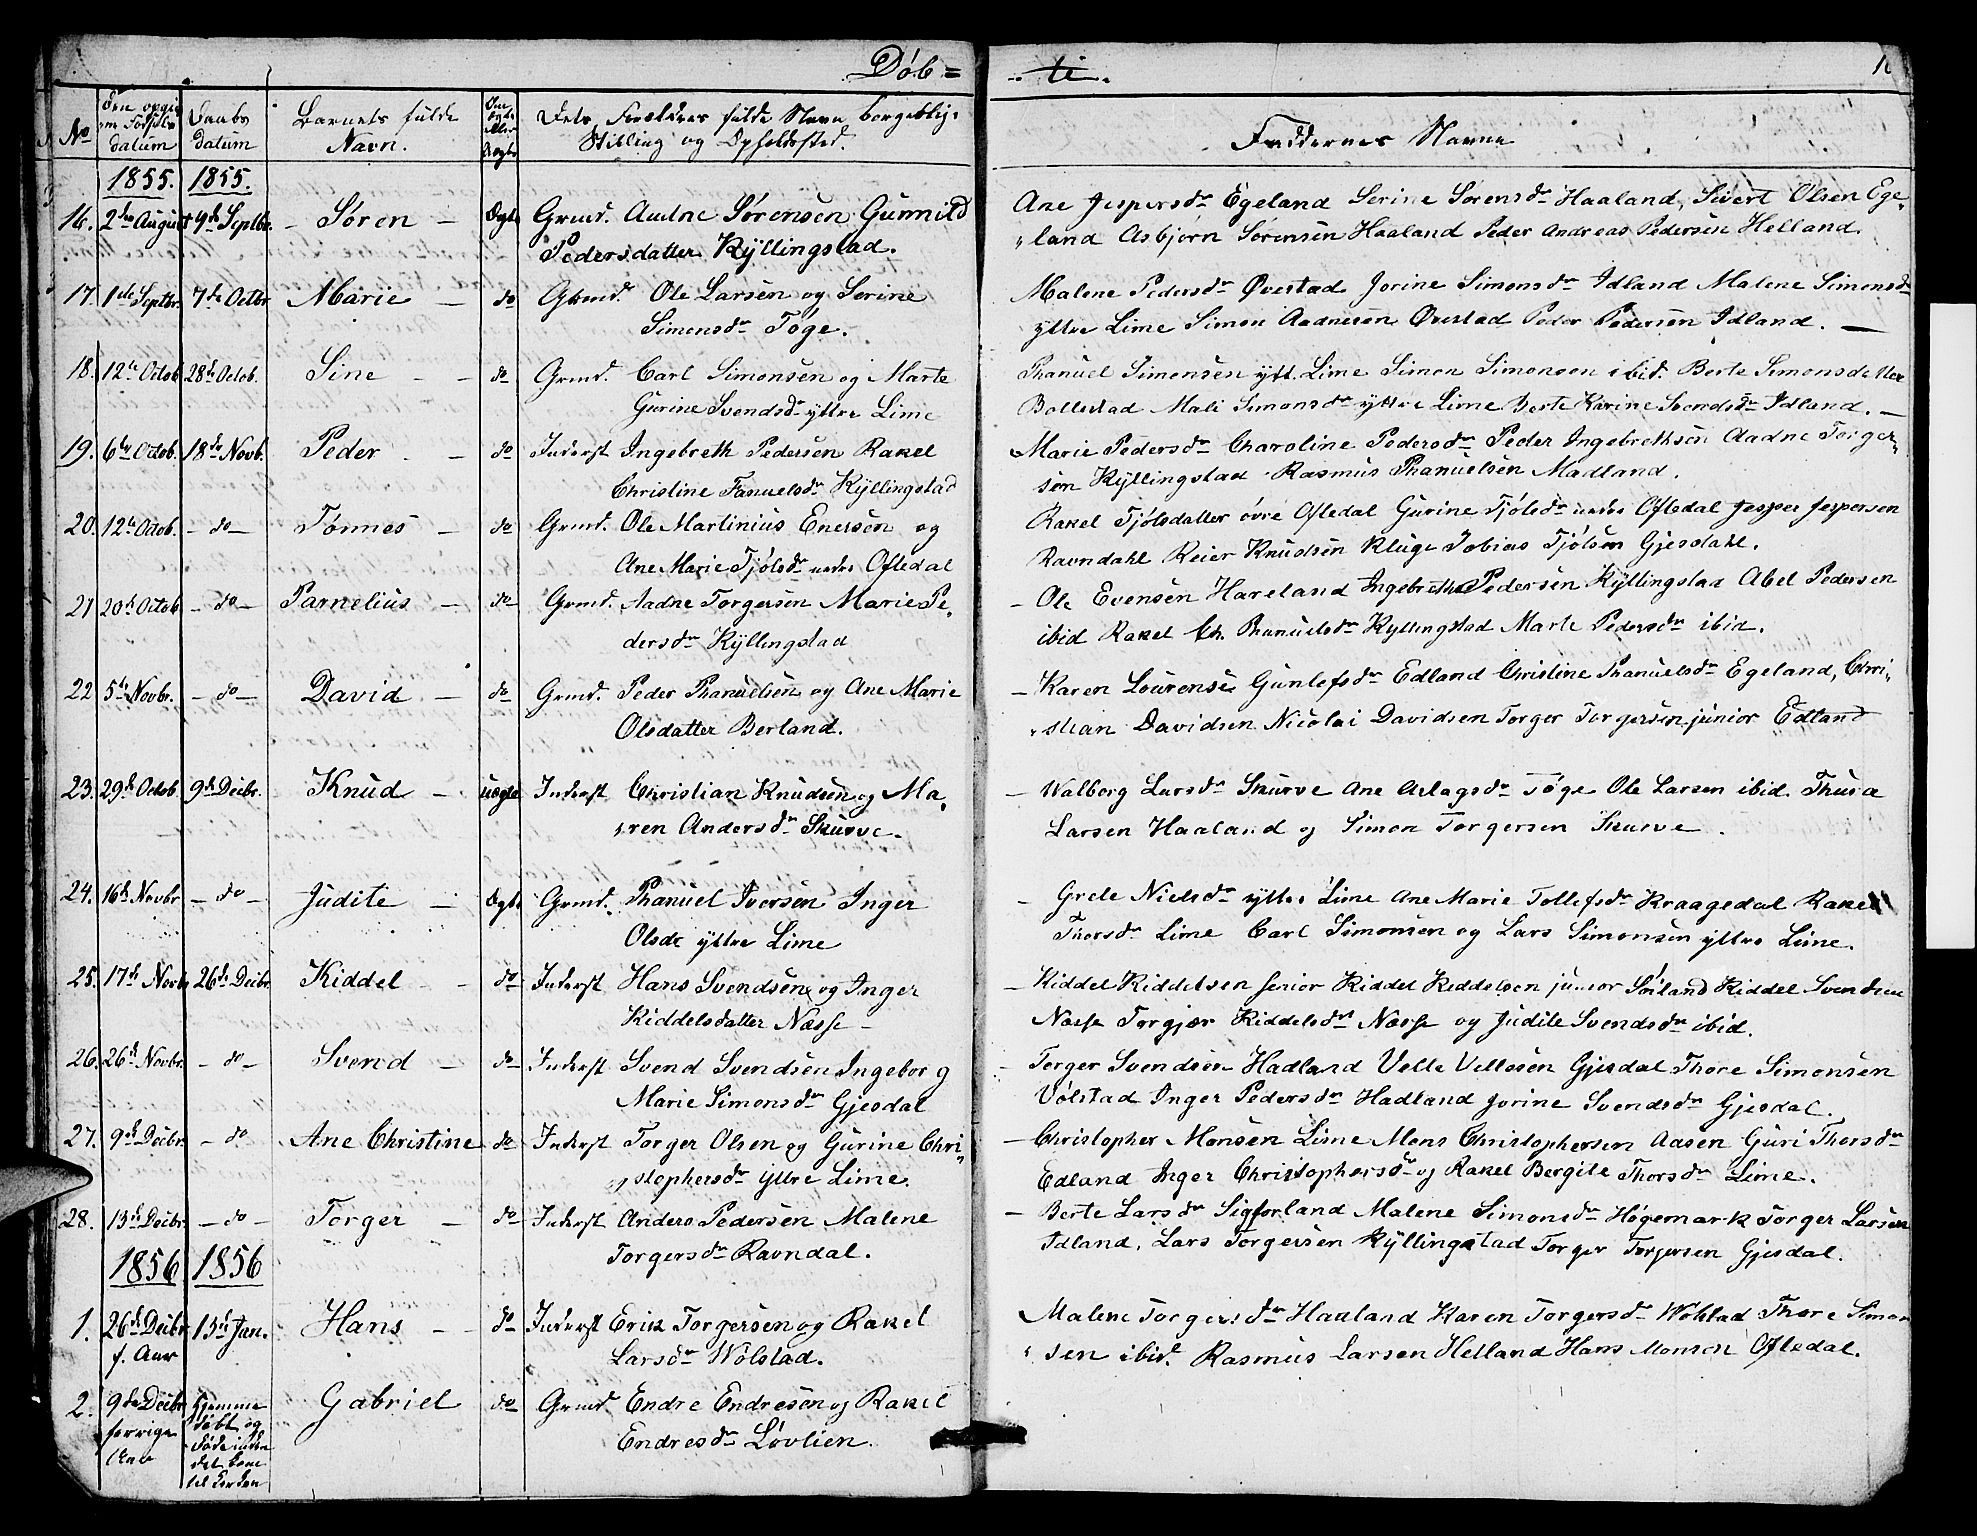 Døb=
.. te.
No
Den opgi
ne Fødsels
datum
Daabs
datum
Barnets fulde
Navn.
Om
Ægte
eller
Uægte
Dets Forældres fulde Navn borgerlig
Stilling og Opholdssted.
Faddernes Navne
1855. 1855.
16. 2den August 9de Septbr. - Søren - Ægte Grmd. Aadne Sørensen Gunnild
Pedersdatter Kÿllingstad.
Ane Jespersdr Egeland Serine Sørensdr Haaland, Sivert Olsen Ege-
land Asbjørn Sørensen Haaland Peder Andreas Pedersen Helland.
17. 1ste Septbr. 7de Octbr Marie - do Grmd. Ole Larsen og Serine
Simonsdr Tøge.
Malene Pedersdr Øvestad Jorine Simonsdr Idland Malene Simonsdr
yttre Lime Simon Aadnesen Øvestad Peder Pedersen Idland. -
18. 12te Octob. 28de Octob. Sine - - do Grmd. Carl Simonsen og Marte
Gurine Svendsdr yttre Lime
Phanuel Simonsen ytt. Lime Simon Simonsen ibid. Berte Simonsdatter
Bollestad Mali Simonsdr yttre Lime Berte Karine Svendsdr Idland. -
19. 6te Octob. 18de Novb. Peder - - do Inderst Ingebreth Pedersen Rakel
Christine Fanuelsdr Kÿllingstad
Marie Pedersdr Charoline Pedersdr Peder Ingebrethsen Aadne Torger-
sen Kÿllingstad Rasmus Phanuelsen Madland.
20. 12te Octob. - do - Tønnes - do Grmd. Ole Martinius Enersen og
Ane Marie Tjølsdr nedre Ofledal
Rakel Tjølsdatter øvre Ofledal Gurine Tjølsdr nedre Ofledal Jesper Jespersen
Ravndahl Reier Knudsen Kluge Tobias Tjølsen Gjesdahl.
21 20de Octob - do - Parnelius - do Grmd. Aadne Torgersen Marie Pe-
dersdr Kÿllingstad
- Ole Evensen Hareland Ingebreth Pedersen Kÿllingstad Abel Pedersen
ibid Rakel Ch. Phanuelsdr Kyllingstad Marte Pedersdr ibid.
22 5te Novbr. - do - David - do Grmd. Peder Phanuelsen og Ane Marie
Olsdatter Berland.
- Karen Lourense Gunlefsdr Edland Christine Phanuelsdr Egeland, Chri-
stian Davidsen Nicolai Davidsen Torger Torgersen junior Edland
23. 29de Octob. 9de Decbr. Knud - uægte Inderst Christian Knudsen og Ma-
ren Andersdr Skurve.
- Walborg Larsdr Skurve Ane Aslagsdr Tøge Ole Larsen ibid. Thusa
Larsen Haaland og Simon Torgersen Skurve.
24. 16de Novbr - do - Judite - Ægte Grmd. Phanuel Iversen Inger
Olsdr yttre Lime
- Grete Nielsdr yttre Lime Ane Marie Tollefsdr Kraagedal Rakel
Thorsdr Lime Carl Simonsen og Lars Simonsen yttre Lime.
25. 17de Novbr 26de Decbr. Kiddel - do Inderst Hans Svendsen og Inger
Kiddelsdatter Næsse -
- Kiddel Kiddelsen senior Kiddel Kiddelsen junior Søiland Kiddel Svendsen
Næsse Torgjær Kiddelsdr Næsse og Judite Svendsdr ibid.
26. 26de Novbr. - do - Svend - do Inderst Svend Svendsen Ingeborg
Marie Simonsdr Gjesdal
- Torger Svendsen Hadland Velle Vellesen Gjesdal Thore Simonsen
Vølstad Inger Pedersdr Hadland Jorine Svendsdr Gjesdal.
27. 9de Decbr. - do Ane Christine do Inderst Torger Olsen og Gurine Chri-
stophersdr yttre Lime.
- Christopher Monsen Lime Mons Christophersen Aasen Guri Thorsdr
Edland Inger Christophersdr og Rakel Bergite Thorsdr Lime.
28. 13de Decbr. - do - Torger - do Inderst Anders Pedersen Malene
Torgersdr Ravndal.
- Berte Larsdr Sigforland Malene Simonsdr Høgemark Torger Larsen
Idland, Lars Torgersen Kÿllingstad Torger Torgersen Gjesdal.
1856 1856
1. 26de Decbr
f. Aar
13de Jan. Hans - - do Inderst Erik Torgersen og Rakel
Larsdr Wølstad.
Malene Torgersdr Haaland Karen Torgersdr Wølstad Thore Simon
sen ibid. Rasmus Larsen Helland Hans Monsen Ofledal.
2. 9de Decbr
forrige
Aar
Hjemme
døbt og
døde inden
det kom
til Kirken
Gabriel do Grmd. Endre Endresen og Rakel
Endresdr Løvlien.